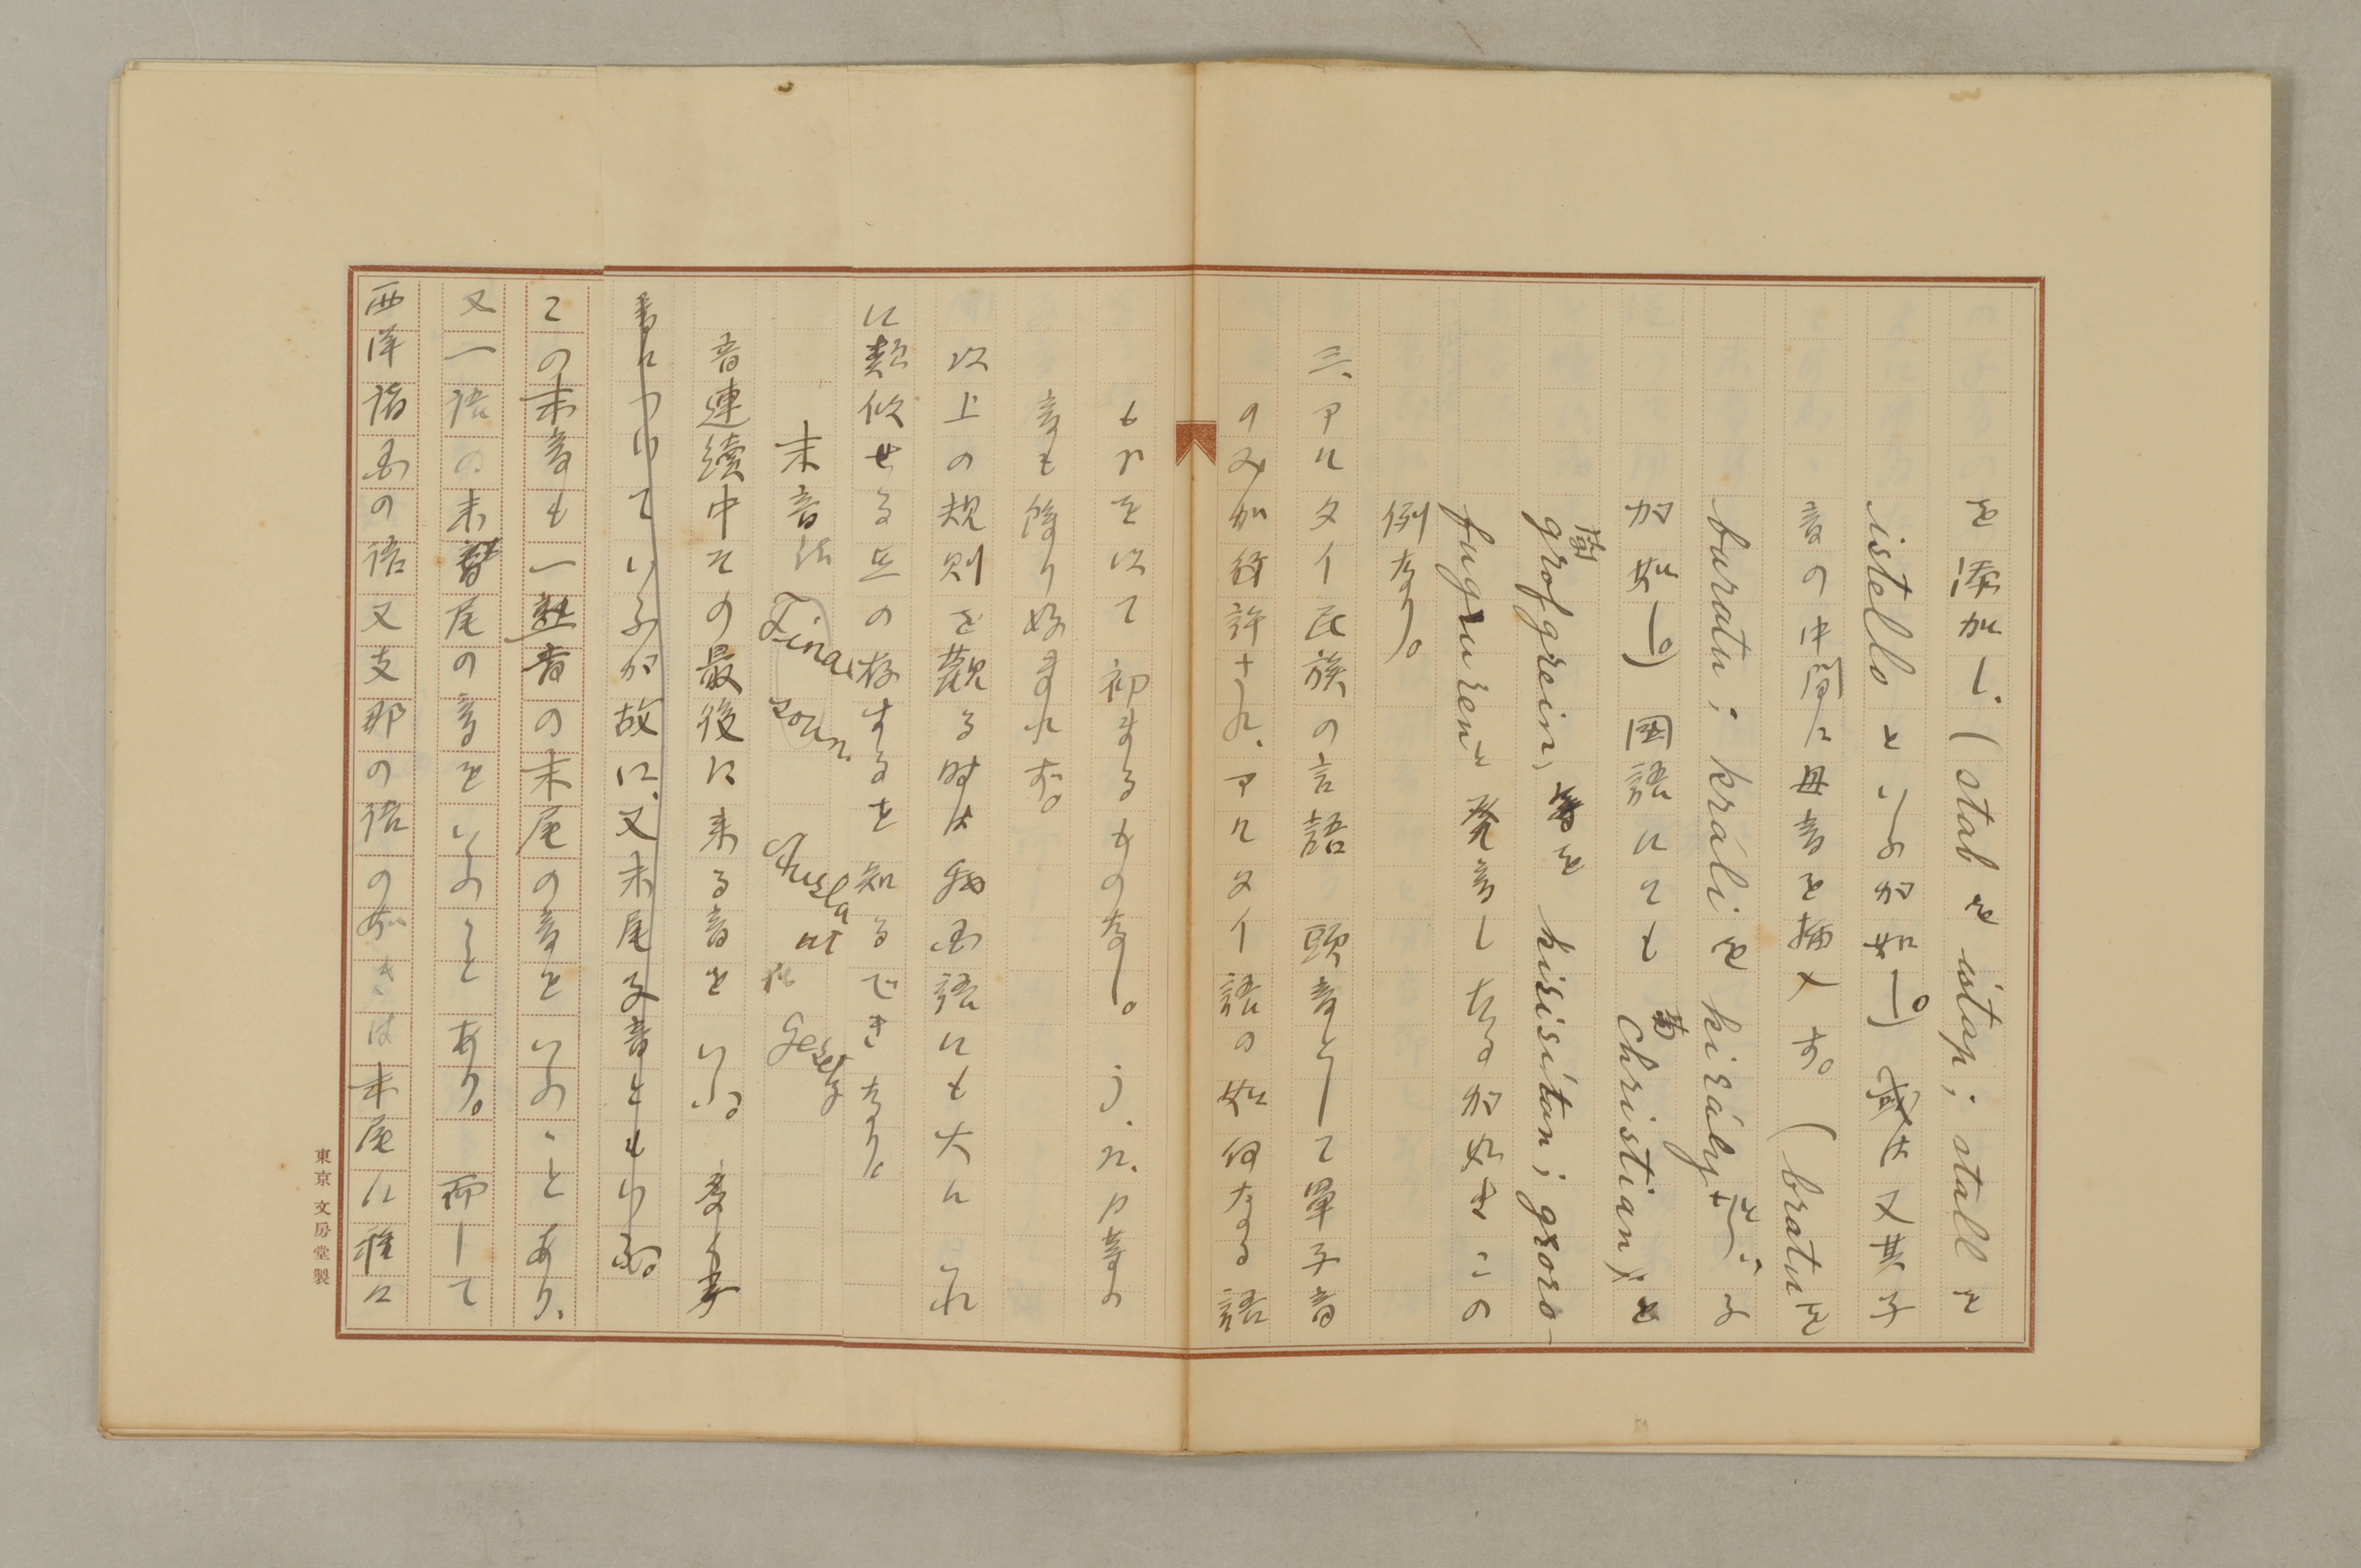 を添加し、(stab を istap; stall を
istelló といふが如し。)或は又其子
音の中間に母音を插入す。(bratu を
buratu; králi を király といふ
が如し。)国語にても Christian を
蘭 grofgrein, を kirisitan; groro-
fuguren と発音したるが如きこの
例なり。
三、アルタイ民族の言語 頭音として單子音
のみが許され、アルタイ語の如何なる語
も r を以て初まるものなし。
音も餘り好まれず。
以上の規則を観る時は我国語にも大にこれ
に類似せる点の存するを知るべきなり。
末音 法 Final sound. Auslaut Gesetz
音連續中その最後に来る音をいふ。
音についていふが故に、又末尾音ともいふ。
この末音も一熟音の末尾の音をいふことあり、
又一語の末尾の音をいふことあり。而して
西洋諸国の語又支那の語の如きは末尾に種に
東京 文房堂製